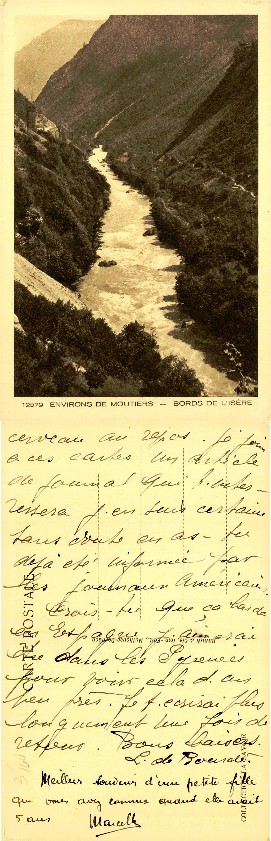 12579 ENVIRONS DE MOUTIERS — BORDS DE L'ISÈRE
cerveau au repos. Je joins
à ces cartes un article
de journal qui t'inté-
ressera j'en suis certaine
sans doute en as-tu
déjà été informée par
les journaux Américains.
Crois-tu que ça barde
en Espagne. J'aimerai
être dans les Pyrénées
pour voir cela d'un
peu près. Je t'écrirai plus
longuement une fois de
retour. Bons baisers.
L. de
Meilleur souvenir d'une petite fille
que vous avez connue quand elle avait
5 ans Marcelle
CARTE POSTALE